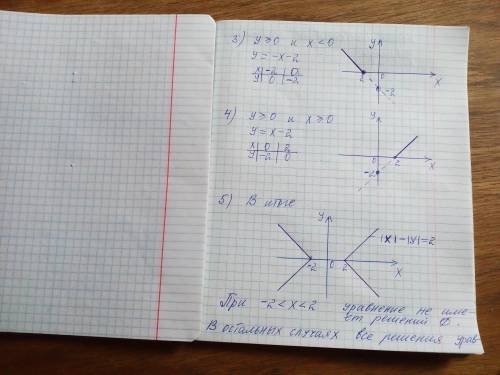 3) y≥0 и x<0
y = -x-2
x | -2 | 0
y | 0 | -2
y
2 0
-2
x
4) y≥0 и x≥0
y = x-2
x | 0 | 2
y | -2 | 0
y
0 2
-2
x
5) В итоге
y
|x|-|y|=2
-2 0 2
x
При -2<x<2 уравнение не име-
ет решений ∅.
В остальных случаях все решения урав-